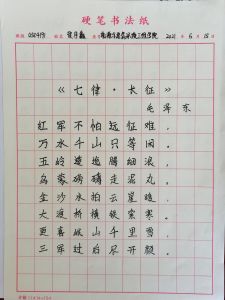 硬笔书法纸
2021年6月15日
《七律·长征》
毛泽东
红军不怕远征难，
万水千山只等闲。
五岭逶迤腾细浪，
乌蒙磅礴走泥丸。
金沙水拍云崖暖，
大渡桥横铁索寒。
更喜岷山千里雪，
三军过后尽开颜。